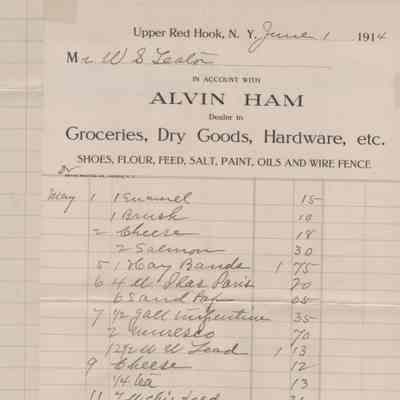 Upper Red Hook, N. Y. June 1 1914
Mr W S Teator
IN ACCOUNT WITH
ALVIN HAM
Dealer in
Groceries, Dry Goods, Hardware, etc.
SHOES, FLOUR, FEED, SALT, PAINT, OILS AND WIRE FENCE
May 1 1 Enamel 15
1 Brush 10
2 Cheese 18
2 Salmon 30
5 1 Hay Bands 1 75
6 4 lb. Plas Paris 20
6 Sand Pap 05
7 1/2 gall Turpentine 35
2 Muresco 70
12 1/2 W Lead 1 13
9 Cheese 12
1/4 tea 13
11